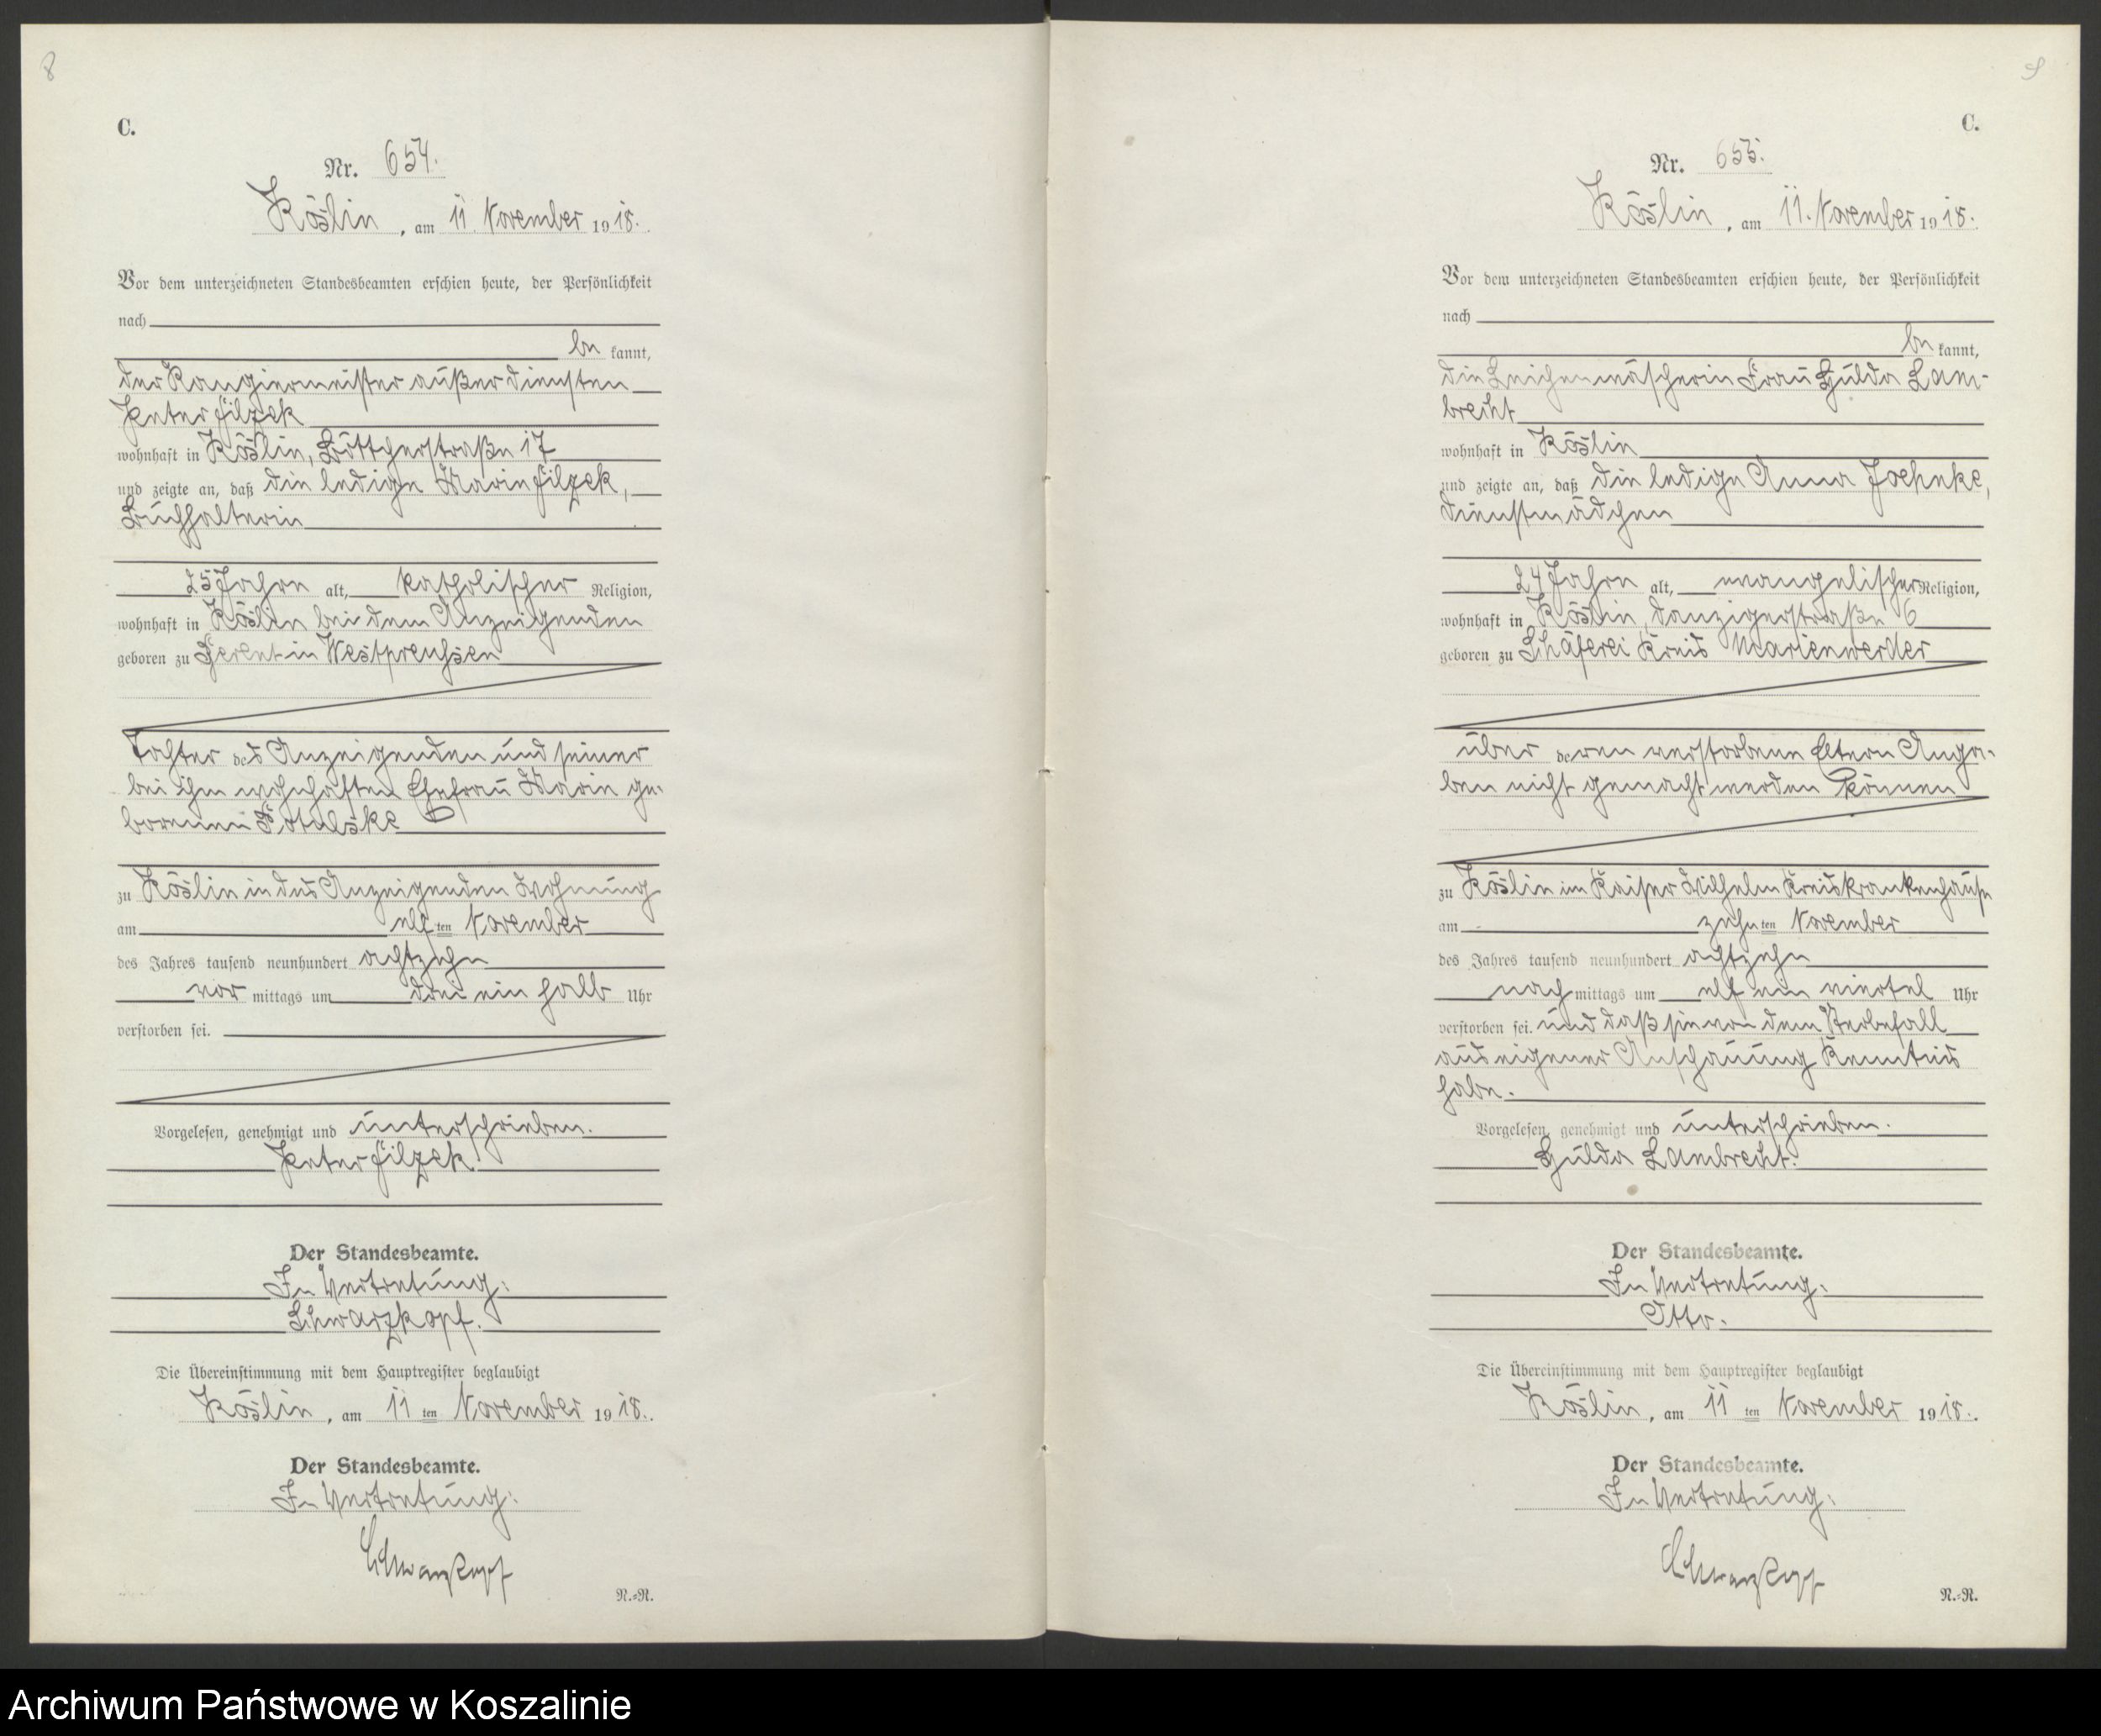 8
C.
Nr. 654.
Köslin, am 11. November 1918.
Vor dem unterzeichneten Standesbeamten erschien heute, der Persönlichkeit
nach
be kannt,
der Rangiermeister außer Diensten
Peter Filzek
wohnhaft in Köslin, Böttcherstraße 17
und zeigte an, daß die ledige Marie Filzek,
Buchhalterin
25 Jahre alt, katholischer Religion,
wohnhaft in Köslin bei dem Anzeigenden
geboren zu Berent in Westpreußsen
Tochter des Anzeigenden und seiner
bei ihm wohnhaften Ehefrau Marie ge-
borenen
zu Köslin in des Anzeigenden Wohnung
am elf ten November
des Jahres tausend neunhundert achtzehn
vor mittags um drei ein halb Uhr
verstorben sei.
Vorgelesen, genehmigt und unterschrieben.
Peter Filzek.
Der Standesbeamte.
In Vertretung:
Schwarzkopf.
Die Übereinstimmung mit dem Hauptregister beglaubigt
Köslin, am 11 ten November 1918.
Der Standesbeamte.
In Vertretung:
Schwarzkopf
N.=R.
9
C.
Nr. 655.
Köslin, am 11. November 1918.
Vor dem unterzeichneten Standesbeamten erschien heute, der Persönlichkeit
nach
be kannt,
die Leichenwäscherin Frau Hulda Lam-
brecht
wohnhaft in Köslin
und zeigte an, daß die ledige Anna Joehnke,
Dienstmädchen
24 Jahre alt, evangelischer Religion,
wohnhaft in Köslin, Danzigerstraße 6
geboren zu Schäferei Kreis Marienwerder
über deren verstorbene Eltern Anga-
ben nicht gemacht werden können
zu Köslin im Kaiser Wilhelm Kreiskrankenhause
am zehn ten November
des Jahres tausend neunhundert achtzehn
nach mittags um elf ein viertel Uhr
verstorben sei. und daß sie von dem Sterbefall
aus eigener Anschauung Kenntnis
habe.
Vorgelesen, genehmigt und unterschrieben.
Hulda Lambrecht.
Der Standesbeamte.
In Vertretung:
Otto.
Die Übereinstimmung mit dem Hauptregister beglaubigt
Köslin, am 11 ten November 1918.
Der Standesbeamte.
In Vertretung:
Schwarzkopf
N.=R.
Archiwum Państwowe w Koszalinie